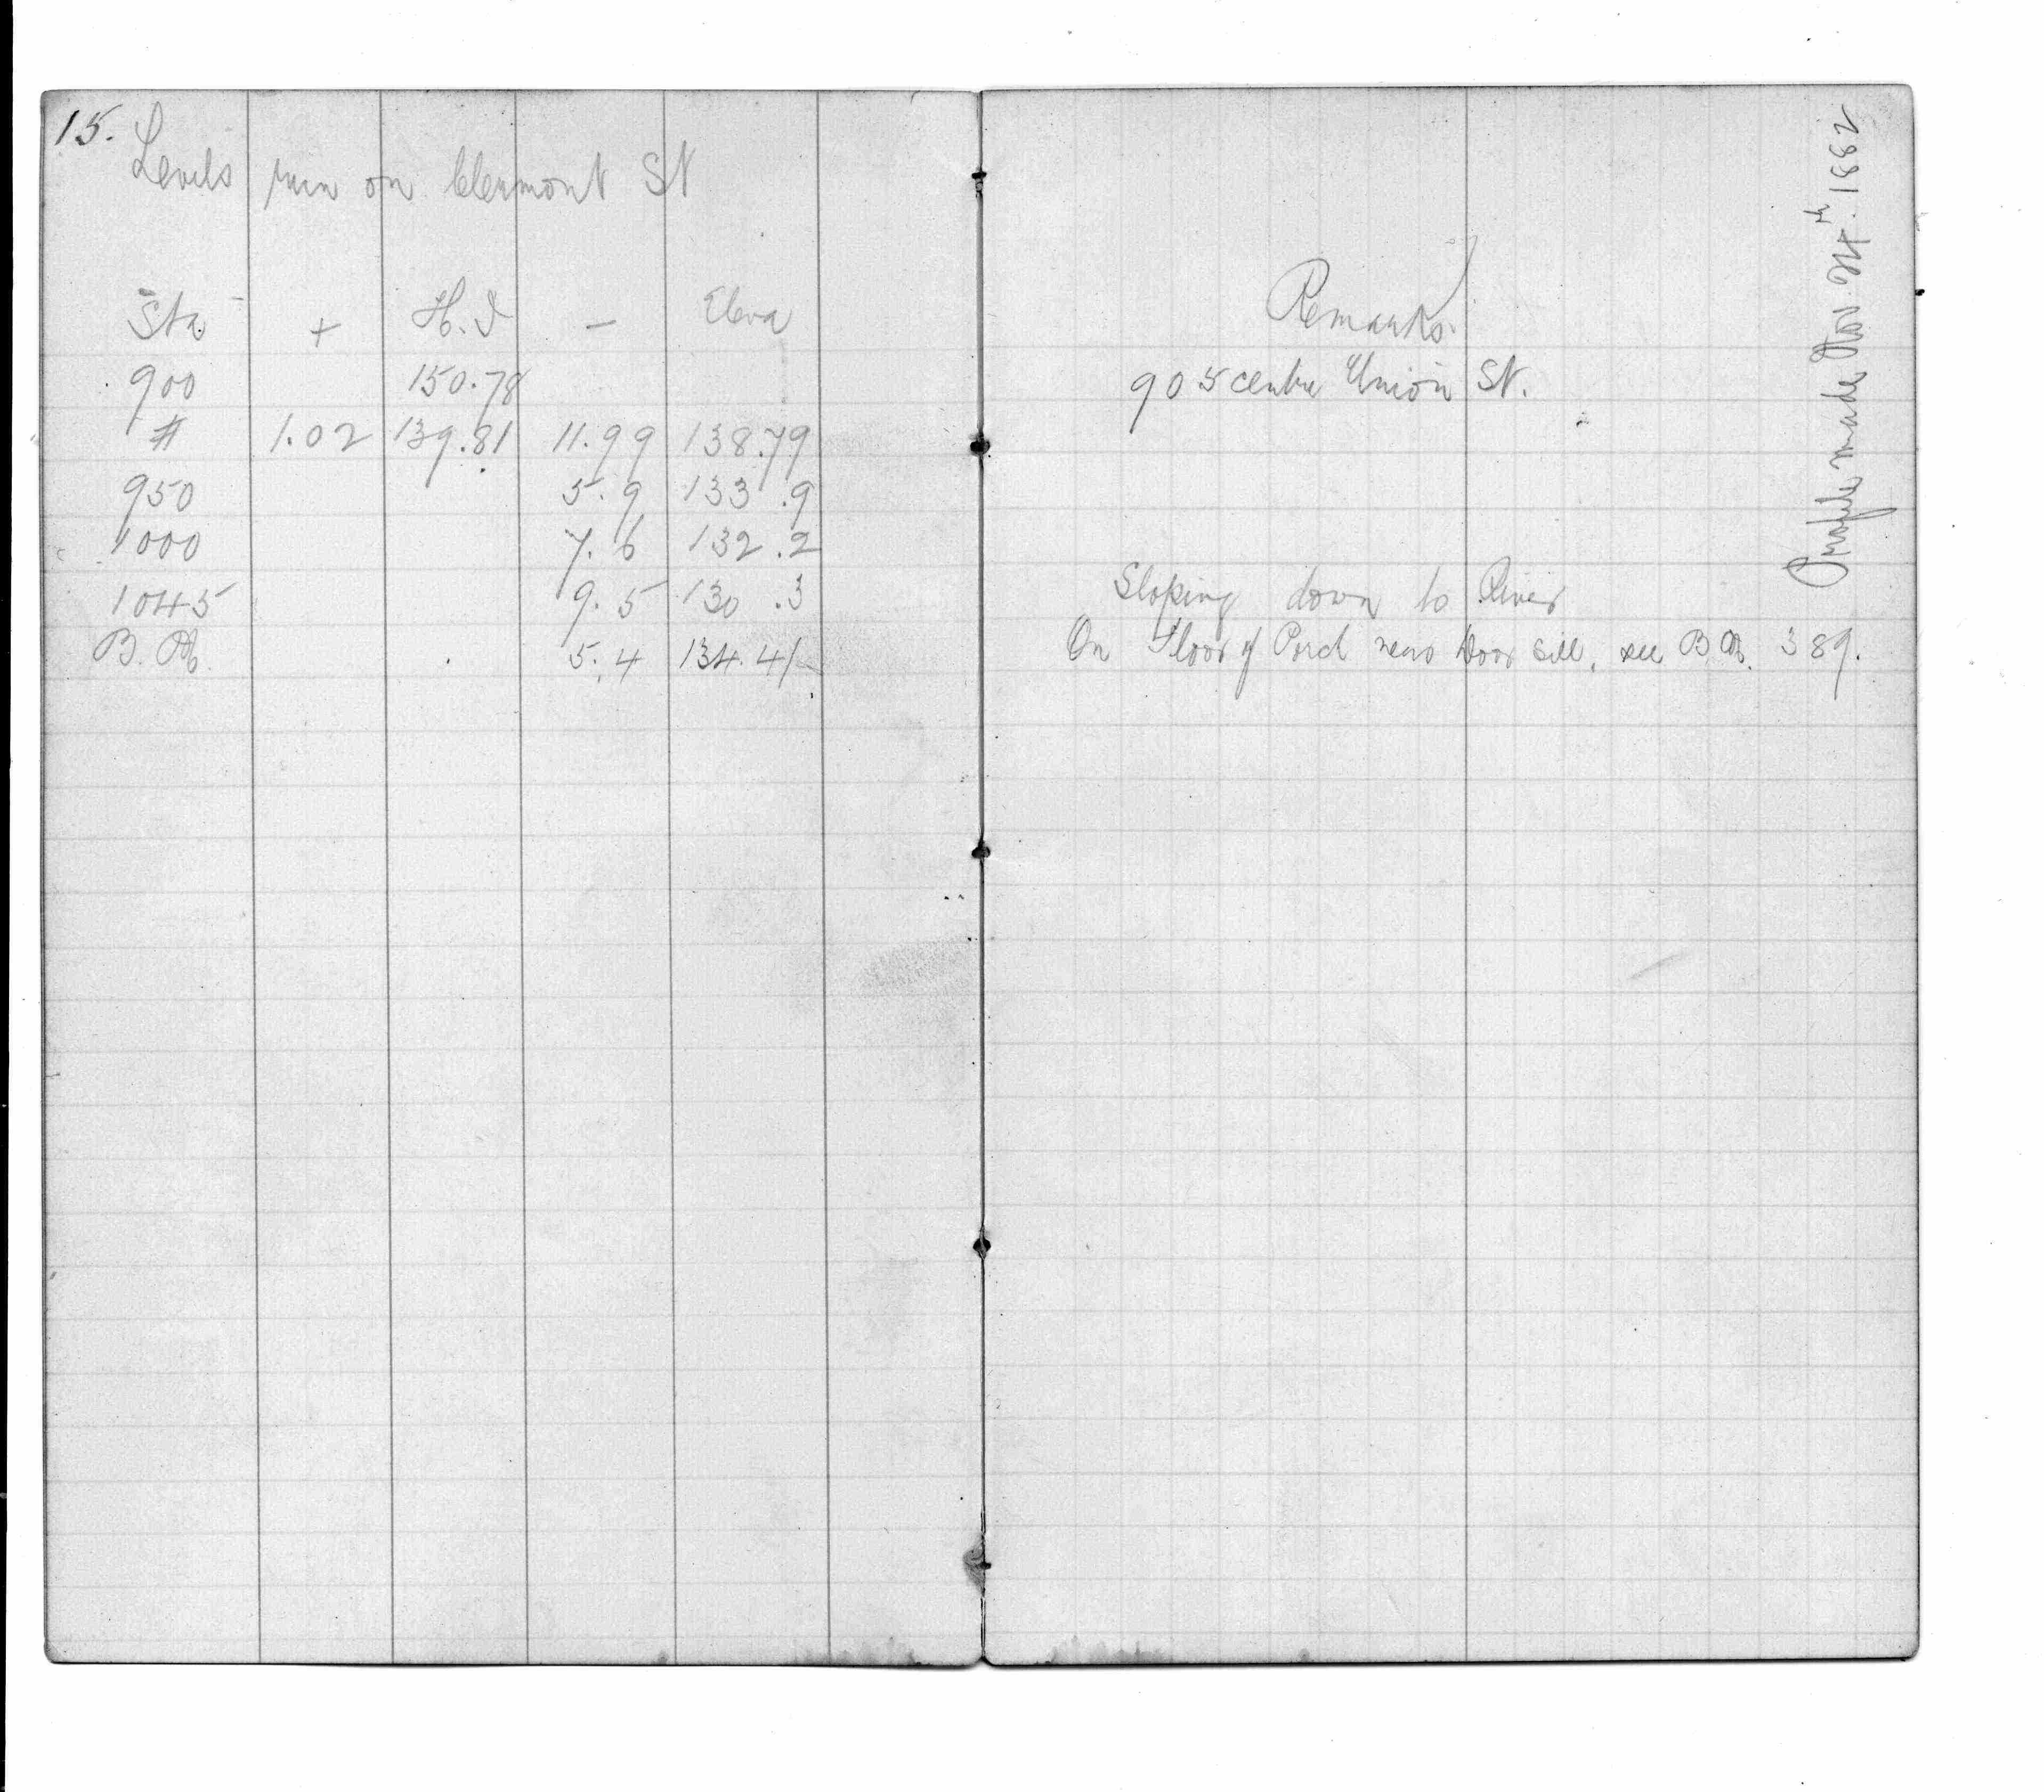 15.
Levels run on Clermont St
Sta + H.I - Eleva
900 150.78
# 1.02 139.81 11.99 138.79
950 5.9 133.9
1000 7.6 132.2
1045 9.5 130.3
B.M. 5.4 134.4
Remarks
905 centre Union St.
Sloping down to River
On Floor of Porch near Door Sill, see B.M. 389.
Profile made Nov. 24th. 1882